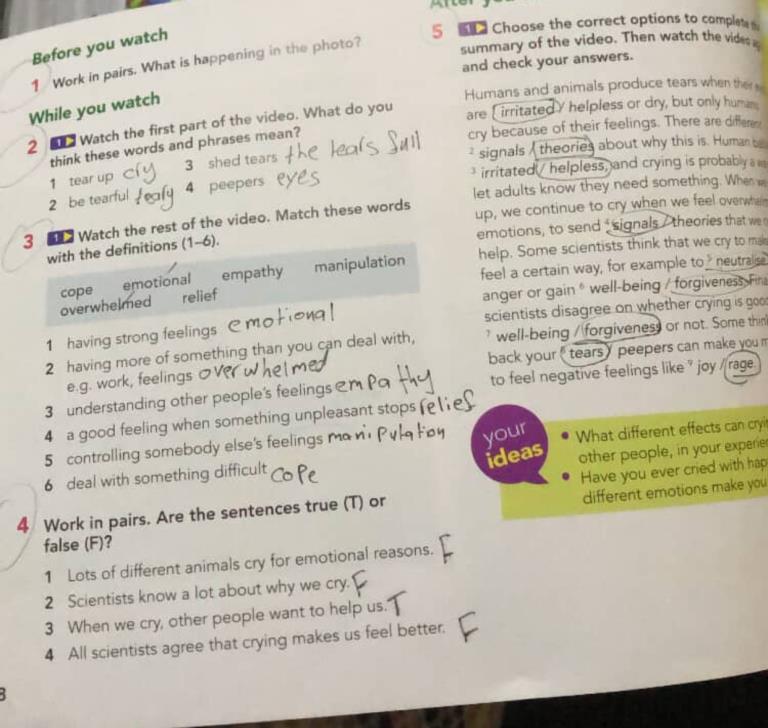 Before you watch
1 Work in pairs. What is happening in the photo?
While you watch
2 1 Watch the first part of the video. What do you
think these words and phrases mean?
1 tear up cry 3 shed tears the tears full
2 be tearful 4 peepers eyes
3 1 Watch the rest of the video. Match these words
with the definitions (1–6).
cope emotional empathy manipulation
overwhelmed relief
1 having strong feelings emotional
2 having more of something than you can deal with,
e.g. work, feelings overwhelmed
3 understanding other people's feelings empathy
4 a good feeling when something unpleasant stops relief
5 controlling somebody else's feelings manipulation
6 deal with something difficult cope
4 Work in pairs. Are the sentences true (T) or
false (F)?
1 Lots of different animals cry for emotional reasons. F
2 Scientists know a lot about why we cry. F
3 When we cry, other people want to help us. T
4 All scientists agree that crying makes us feel better. F
8
After you
5 1 Choose the correct options to complete
summary of the video. Then watch the video
and check your answers.
Humans and animals produce tears when their
are irritated / helpless or dry, but only humans
cry because of their feelings. There are different
2 signals / theories about why this is. Human
3 irritated / helpless, and crying is probably a
let adults know they need something. When
up, we continue to cry when we feel
emotions, to send 4 signals / theories that we
help. Some scientists think that we cry to make
feel a certain way, for example to 5 neutralise
anger or gain 6 well-being / forgiveness.
scientists disagree on whether crying is good
7 well-being / forgiveness or not. Some think
back your 8 tears / peepers can make you
to feel negative feelings like 9 joy / rage.
your
ideas
• What different effects can
other people, in your
• Have you ever cried with
different emotions make you